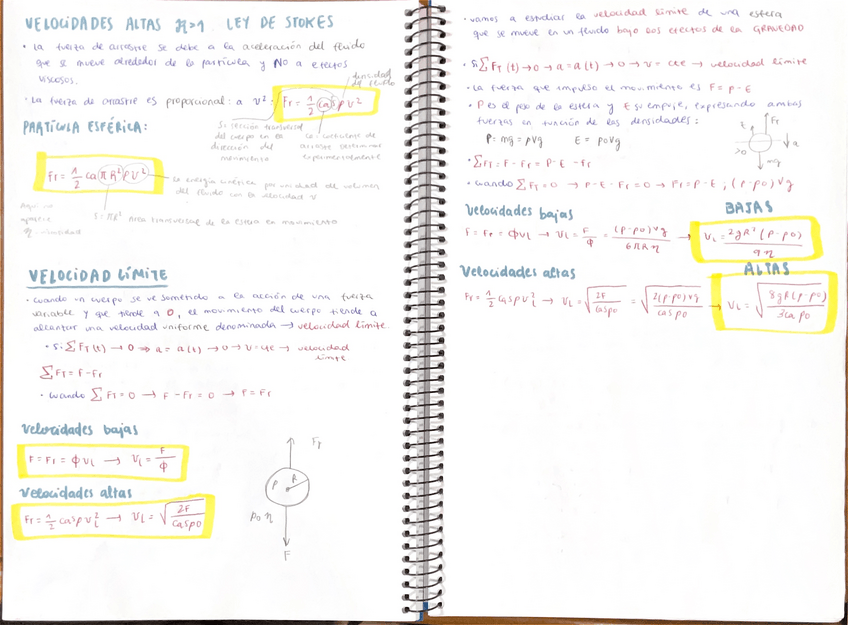 VELOCIDADES ALTAS ℛ>1 LEY DE STOKES
• La fuerza de arrastre se debe a la aceleración del fluido
que se mueve alrededor de la partícula y NO a efectos
viscosos.
• La fuerza de arrastre es proporcional: a v²: Fr = 1/2 Ca S ρ v²
densidad del fluido
S= sección transversal
del cuerpo en la
dirección del
movimiento
Ca = coeficiente de
arrastre
experimentalmente
PARTÍCULA ESFÉRICA:
Fr = 1/2 Ca π R² ρ v²
energía cinética por unidad de volumen
del fluido con la velocidad v
Aquí no
aparece
η
S = πR² Área transversal de la esfera en movimiento
VELOCIDAD LÍMITE
• Cuando un cuerpo se ve sometido a la acción de una fuerza
variable y que tiende a 0, el movimiento del cuerpo tiende a
alcanzar una velocidad uniforme denominada → velocidad límite.
• Si ∑ FT (t) → 0 ⇒ a = a(t) → 0 → v = cte → velocidad
límite
∑ FT = F - Fr
• Cuando ∑ FT = 0 → F - Fr = 0 → F = Fr
Velocidades bajas
F = Fr = ϕ vL → vL = F/ϕ
Velocidades altas
Fr = 1/2 Ca S ρ vL² → vL = √(2F / Ca S ρ0)
Fr
ρ R
ρ0 η
F
• Vamos a estudiar la velocidad límite de una esfera
que se mueve en un fluido bajo los efectos de la GRAVEDAD
• Si ∑ FT (t) → 0 → a = a(t) → 0 → v = cte → velocidad límite
• La fuerza que impulsa el movimiento es F = P - E
• P es el peso de la esfera y E su empuje, expresando ambas
fuerzas en función de las densidades:
P = mg = ρVg E = ρ0Vg
E Fr
a
mg
• ∑ FT = F - Fr = P - E - Fr
• Cuando ∑ FT = 0 → P - E - Fr = 0 → Fr = P - E ; (ρ - ρ0) V g
Velocidades bajas
BAJAS
F = Fr = ϕ vL → vL = F/ϕ = (ρ - ρ0) V g / 6πRη → vL = 2gR² (ρ - ρ0) / 9η
Velocidades altas
ALTAS
Fr = 1/2 Ca S ρ vL² → vL = √(2F / Ca S ρ0) = √(2(ρ - ρ0) V g / Ca S ρ0) → vL = √(8gR(ρ - ρ0) / 3Ca ρ0)